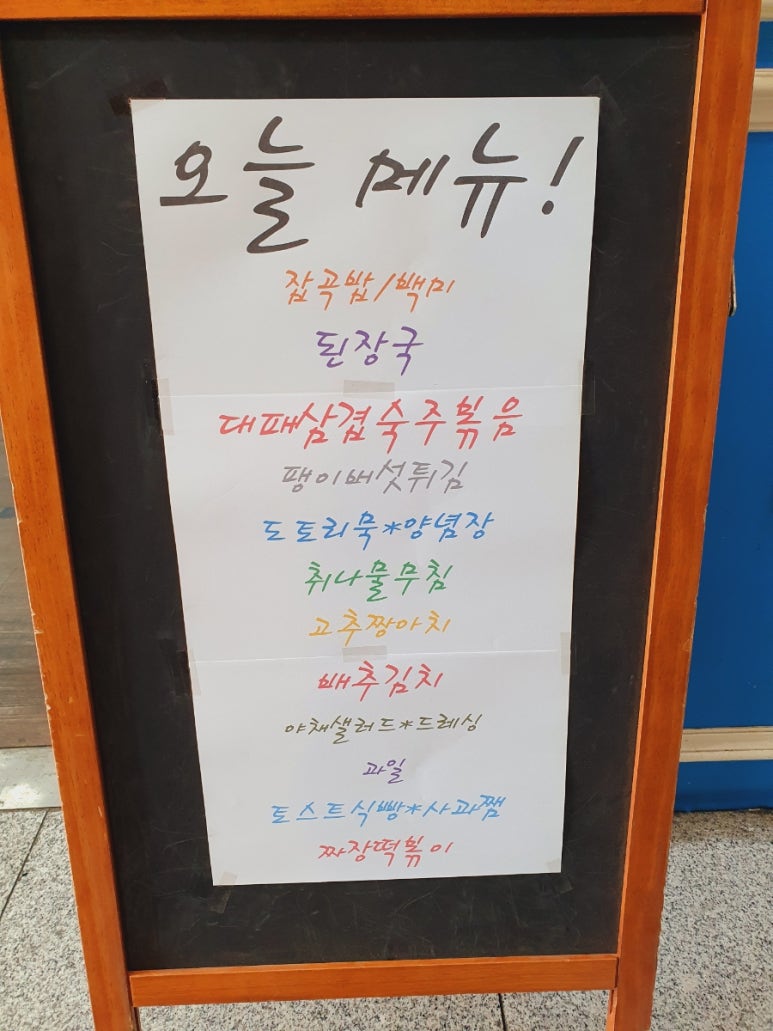 오늘 메뉴!
잡곡밥/백미
된장국
대패삼겹숙주볶음
팽이버섯튀김
도토리묵*양념장
취나물무침
고추짱아치
배추김치
야채샐러드*드레싱
과일
토스트식빵*사과쨈
짜장떡볶이